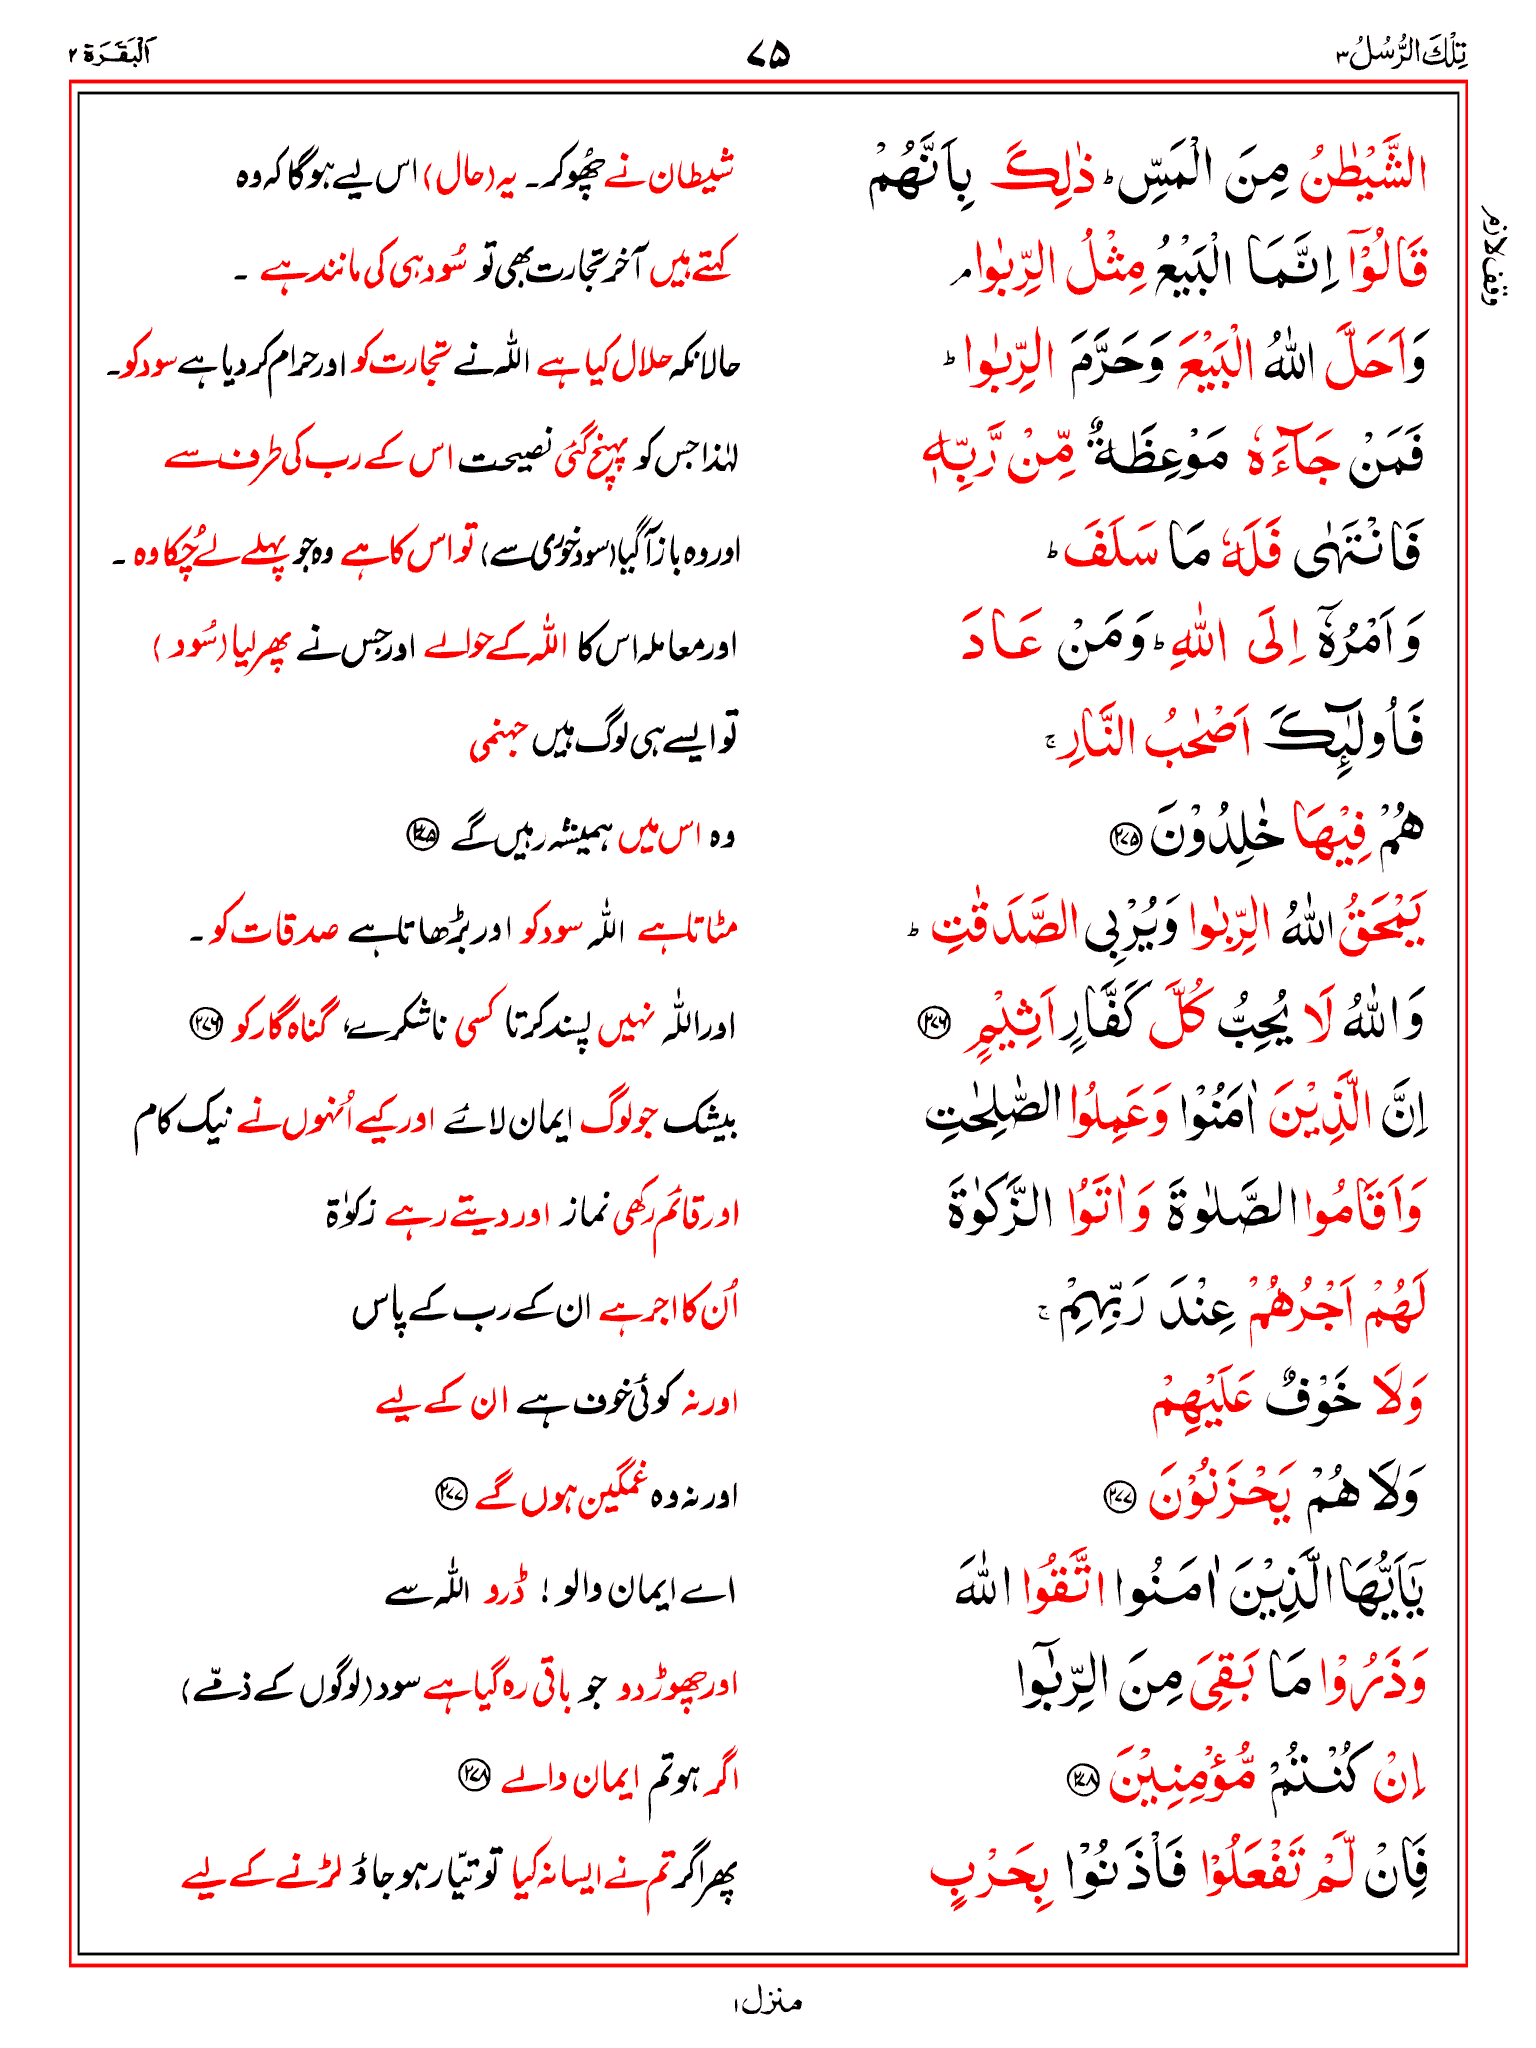 تِلْكَ الرُّسُلُ ٣ ٧٥ اَلْبَقَرَة ٢
وقف لازم
الشَّيْطٰنُ مِنَ الْمَسِّ ؕ ذٰلِكَ بِاَنَّهُمْ شیطان نے چھُو کر۔ یہ (حال) اس لیے ہوگا کہ وہ
قَالُوْۤا اِنَّمَا الْبَيْعُ مِثْلُ الرِّبٰوا ۘ کہتے ہیں آخر تجارت بھی تو سُود ہی کی مانند ہے ۔
وَاَحَلَّ اللّٰهُ الْبَيْعَ وَحَرَّمَ الرِّبٰوا ؕ حالانکہ حلال کیا ہے اللہ نے تجارت کو اور حرام کر دیا ہے سود کو۔
فَمَنْ جَآءَهٗ مَوْعِظَةٌ مِّنْ رَّبِّهٖ لہٰذا جس کو پہنچ گئی نصیحت اس کے رب کی طرف سے
فَانْتَهٰى فَلَهٗ مَا سَلَفَ ؕ اور وہ باز آ گیا (سود خوری سے) تو اس کا ہے وہ جو پہلے لے چُکا وہ ۔
وَاَمْرُهٗۤ اِلَى اللّٰهِ ؕ وَمَنْ عَادَ اور معاملہ اس کا اللہ کے حوالے اور جس نے پھر لیا (سُود )
فَاُولٰٓئِكَ اَصْحٰبُ النَّارِ ۚ تو ایسے ہی لوگ ہیں جہنمی
هُمْ فِيْهَا خٰلِدُوْنَ ۝۲۷۵ وہ اس میں ہمیشہ رہیں گے ۝۲۷۵
يَمْحَقُ اللّٰهُ الرِّبٰوا وَيُرْبِى الصَّدَقٰتِ ؕ مٹاتا ہے اللہ سود کو اور بڑھاتا ہے صدقات کو ۔
وَاللّٰهُ لَا يُحِبُّ كُلَّ كَفَّارٍ اَثِيْمٍ ۝۲۷۶ اور اللہ نہیں پسند کرتا کسی ناشکرے، گناہ گار کو ۝۲۷۶
اِنَّ الَّذِيْنَ اٰمَنُوْا وَعَمِلُوا الصّٰلِحٰتِ بیشک جو لوگ ایمان لائے اور کیے اُنہوں نے نیک کام
وَاَقَامُوا الصَّلٰوةَ وَاٰتَوُا الزَّكٰوةَ اور قائم رکھی نماز اور دیتے رہے زکوٰۃ
لَهُمْ اَجْرُهُمْ عِنْدَ رَبِّهِمْ ۚ اُن کا اجر ہے ان کے رب کے پاس
وَلَا خَوْفٌ عَلَيْهِمْ اور نہ کوئی خوف ہے ان کے لیے
وَلَا هُمْ يَحْزَنُوْنَ ۝۲۷۷ اور نہ وہ غمگین ہوں گے ۝۲۷۷
يٰۤاَيُّهَا الَّذِيْنَ اٰمَنُوا اتَّقُوا اللّٰهَ اے ایمان والو ! ڈرو اللہ سے
وَذَرُوْا مَا بَقِىَ مِنَ الرِّبٰۤوا اور چھوڑ دو جو باقی رہ گیا ہے سود (لوگوں کے ذمّے)
اِنْ كُنْتُمْ مُّؤْمِنِيْنَ ۝۲۷۸ اگر ہو تم ایمان والے ۝۲۷۸
فَاِنْ لَّمْ تَفْعَلُوْا فَاْذَنُوْا بِحَرْبٍ پھر اگر تم نے ایسا نہ کیا تو تیّار ہو جاؤ لڑنے کے لیے
منزل ۱